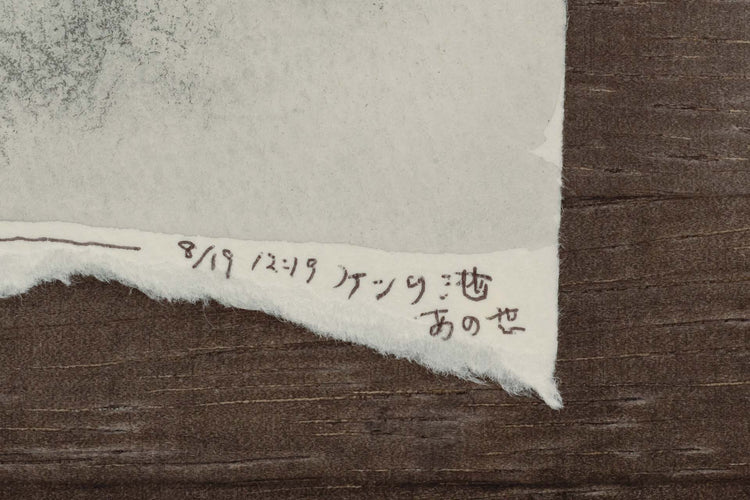 8/19 12:19 ノケンの池
あの世